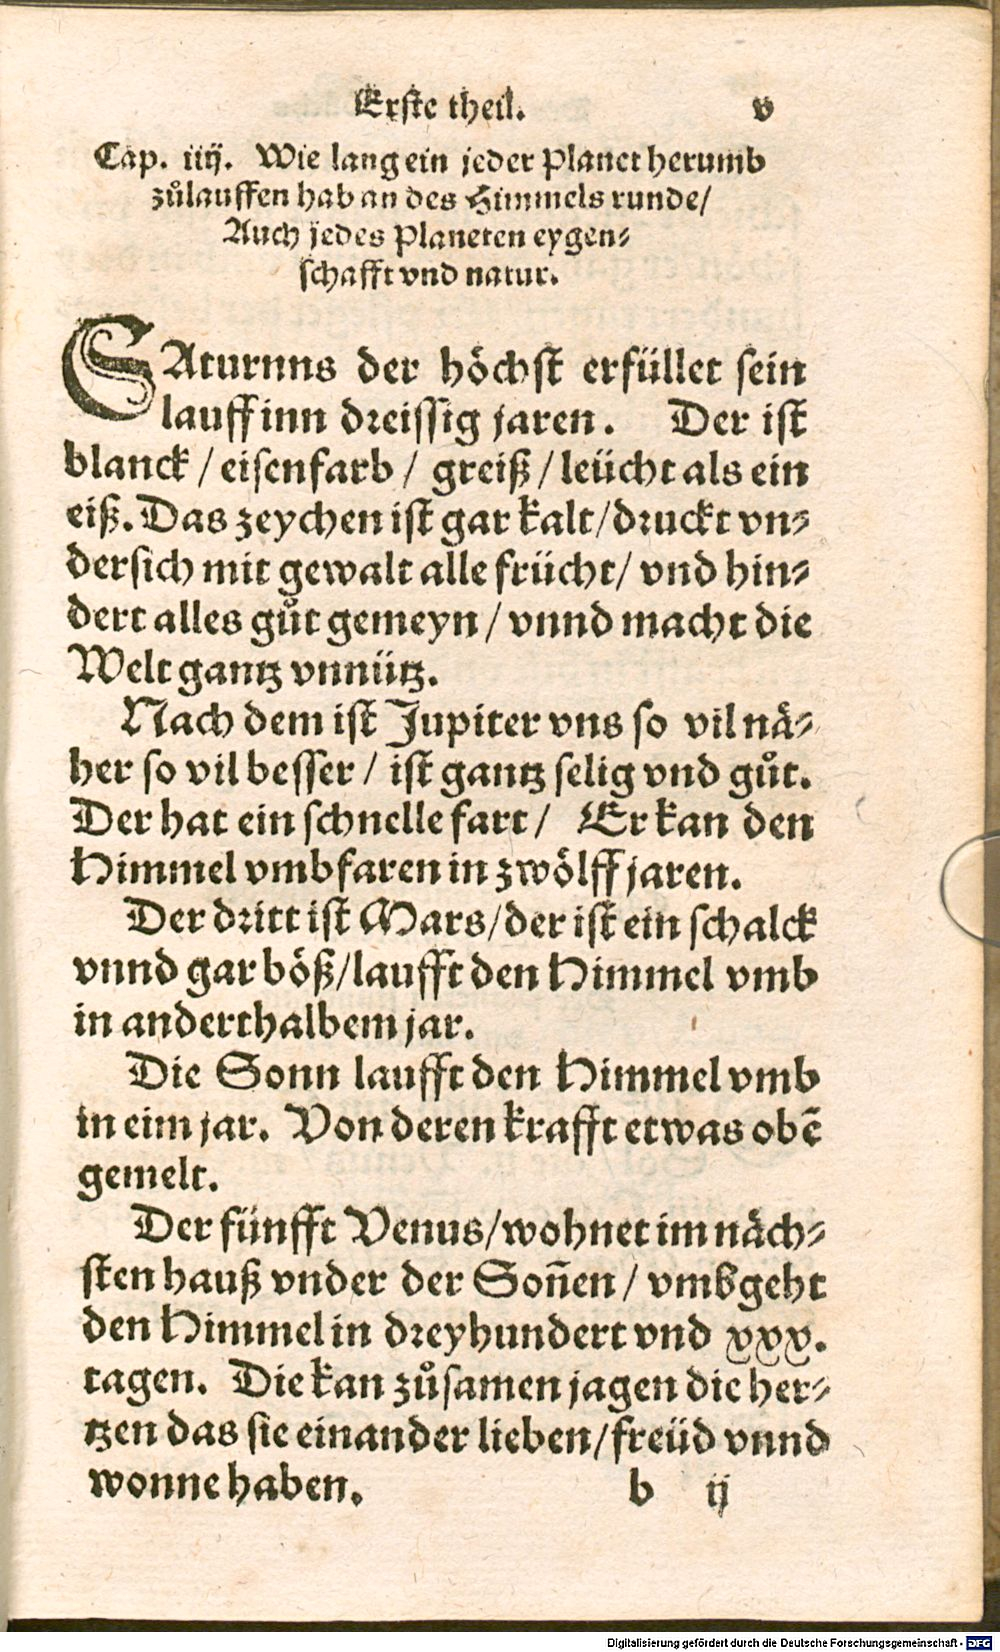 Erste theil. v
Cap. iiij. Wie lang ein jeder Planet herumb
zůlauffen hab an des Himmels runde/
Auch jedes Planeten eygen⸗
schafft vnd natur.
SAturnns der höchst erfüllet sein
lauff inn dreissig jaren. Der ist
blanck / eisenfarb / greiß / leücht als ein
eiß. Das zeychen ist gar kalt/druckt vn⸗
dersich mit gewalt alle frücht/ vnd hin⸗
dert alles gůt gemeyn / vnnd macht die
Welt gantz vnnütz.
Nach dem ist Jupiter vns so vil nä⸗
her so vil besser / ist gantz selig vnd gůt.
Der hat ein schnelle fart / Er kan den
Himmel vmbfaren in zwölff jaren.
Der dritt ist Mars/der ist ein schalck
vnnd gar böß/laufft den Himmel vmb
in anderthalbem jar.
Die Sonn laufft den Himmel vmb
in eim jar. Von deren krafft etwas obē
gemelt.
Der fünfft Venus/wohnet im näch⸗
sten hauß vnder der Soñen / vmbgeht
den Himmel in dreyhundert vnd xxx.
tagen. Die kan zůsamen jagen die her⸗
tzen das sie einander lieben/freüd vnnd
wonne haben. b ij
Digitalisierung gefördert durch die Deutsche Forschungsgemeinschaft - DFG